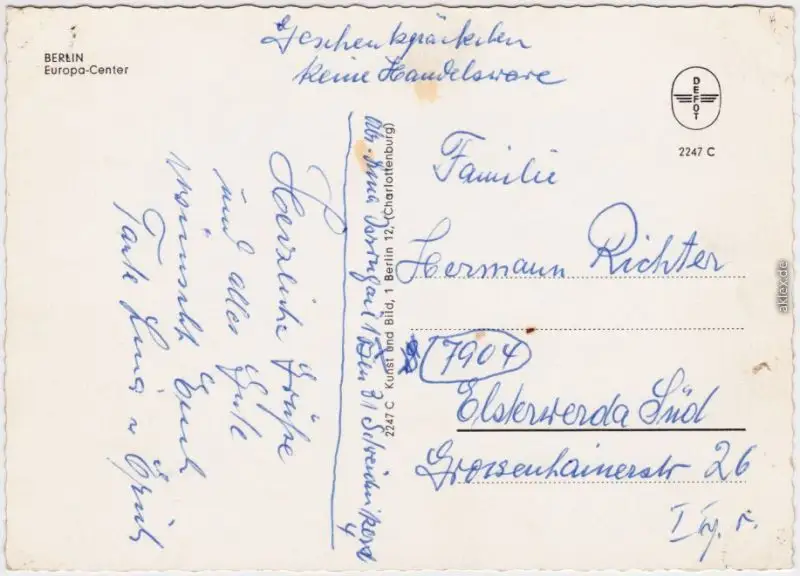 Geschenkpäckchen
keine Handelsware
BERLIN
Europa-Center
DEFOT
2247 C
Herzliche Grüße
und alles Gute
wünscht Euch
Tante Lina u Erich
Abs.
1 Bln 31
4
2247 C Kunst und Bild, 1 Berlin 12, (Charlottenburg)
Familie
Hermann Richter
(7904)
Elsterwerda Süd
Grossenhainerstr 26
I Tr. r.
akpool.de